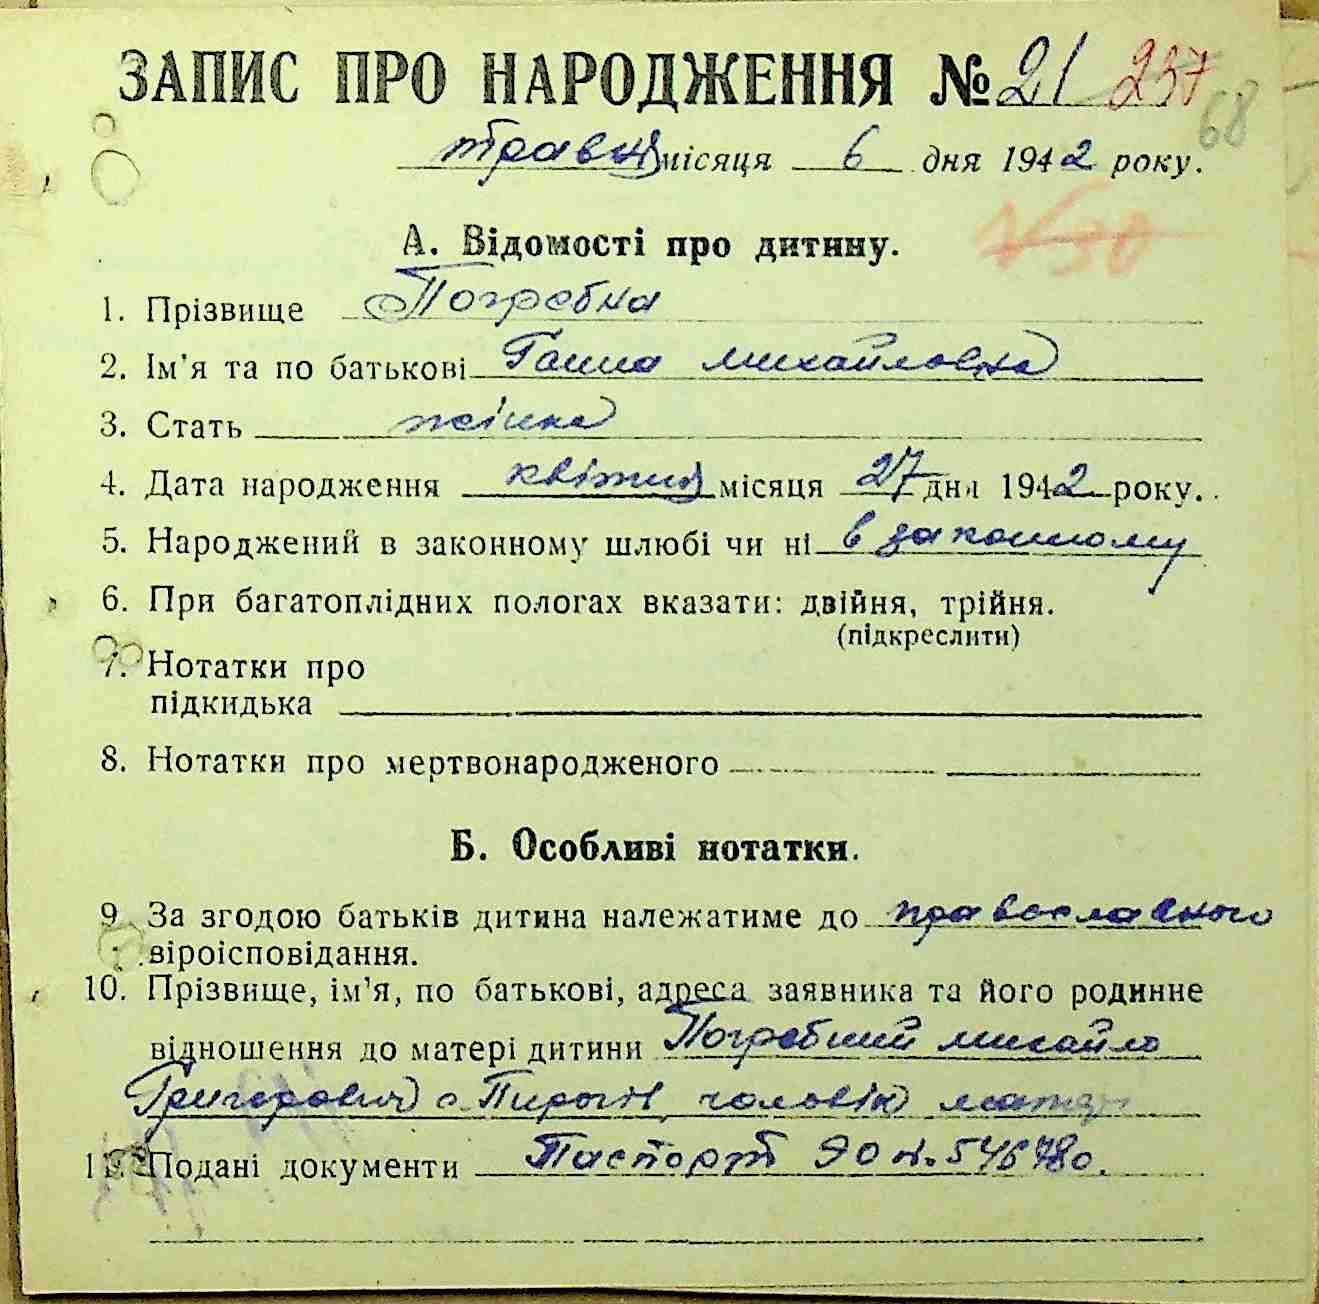 ЗАПИС ПРО НАРОДЖЕННЯ № 21 237
68
травня місяця 6 дня 1942 року.
№30
А. Відомості про дитину.
1. Прізвище Погребна
2. Ім'я та по батькові Ганна Михайловна
3. Стать жінка
4. Дата народження квітня місяця 27 дня 1942 року.
5. Народжений в законному шлюбі чи ні в законному
6. При багатоплідних пологах вказати: двійня, трійня.
(підкреслити)
7. Нотатки про
підкидька
8. Нотатки про мертвонародженого
Б. Особливі нотатки.
9. За згодою батьків дитина належатиме до православного
віроісповідання.
10. Прізвище, ім'я, по батькові, адреса заявника та його родинне
відношення до матері дитини Погребний Михайло
Григорович с. Пирогів, чоловік матері
11. Подані документи Паспорт 90 н. 546780.